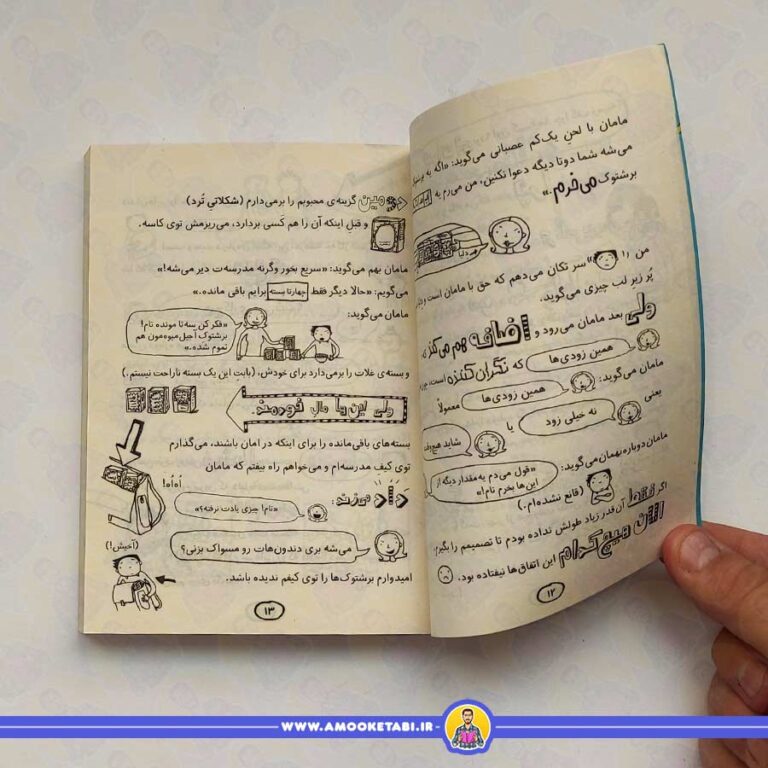 مامان با لحنِ یک‌کم عصبانی می‌گوید: «اگه به
می‌شه شما دوتا دیگه دعوا نکنین، من می‌رم به
برشتوک می‌خرم.»
من را سر تکان می‌دهم که حق با مامان است و
پُر زیر لب چیزی می‌گوید.
ولی بعد مامان می‌رود و اضافه هم می‌کند
همین زودی‌ها
که نگران‌کننده است،
مامان می‌گوید:
همین زودی‌ها
معمولاً
یعنی
نه خیلی زود
یا
شاید هیچ‌وقت
مامان دوباره بهمان می‌گوید:
«قول می‌دم یه مقدار دیگه از
این‌ها بخرم تام!»
(قانع نشده‌ام.)
اگر فقط آن‌قدر زیاد طولش نداده بودم تا تصمیمم را بگیرم
هیچ‌کدام این اتفاق‌ها نیفتاده بود.
۱۲
دومین گزینه‌ی محبوبم را برمی‌دارم (شکلاتیِ تُرد)
و قبل اینکه آن را هم کَسی بردارد، می‌ریزمش توی کاسه.
مامان بهم می‌گوید: «سریع بخور وگرنه مدرسه‌ت دیر می‌شه!»
می‌گویم: «حالا دیگر فقط چهارتا بسته برایم باقی مانده.»
مامان می‌گوید:
«فکر کن سه‌تا مونده تام!
برشتوک آجیل‌میوه‌مون هم
تموم شده.»
و بسته‌ی غلات را برمی‌دارد برای خودش، (بابتِ این یک بسته ناراحت نیستم.)
ولی این‌ها مالِ خودمند.
بسته‌های باقی‌مانده را برای اینکه در امان باشند، می‌گذارم
توی کیف مدرسه‌ام و می‌خواهم راه بیفتم که مامان
اُه‌اُه!
داد می‌زند:
«تام! چیزی یادت نرفته؟»
می‌شه بری دندون‌هات رو مسواک بزنی؟
(آخیش!)
امیدوارم برشتوک‌ها را توی کیفم ندیده باشد.
۱۳
WWW.AMOOKETABI.IR